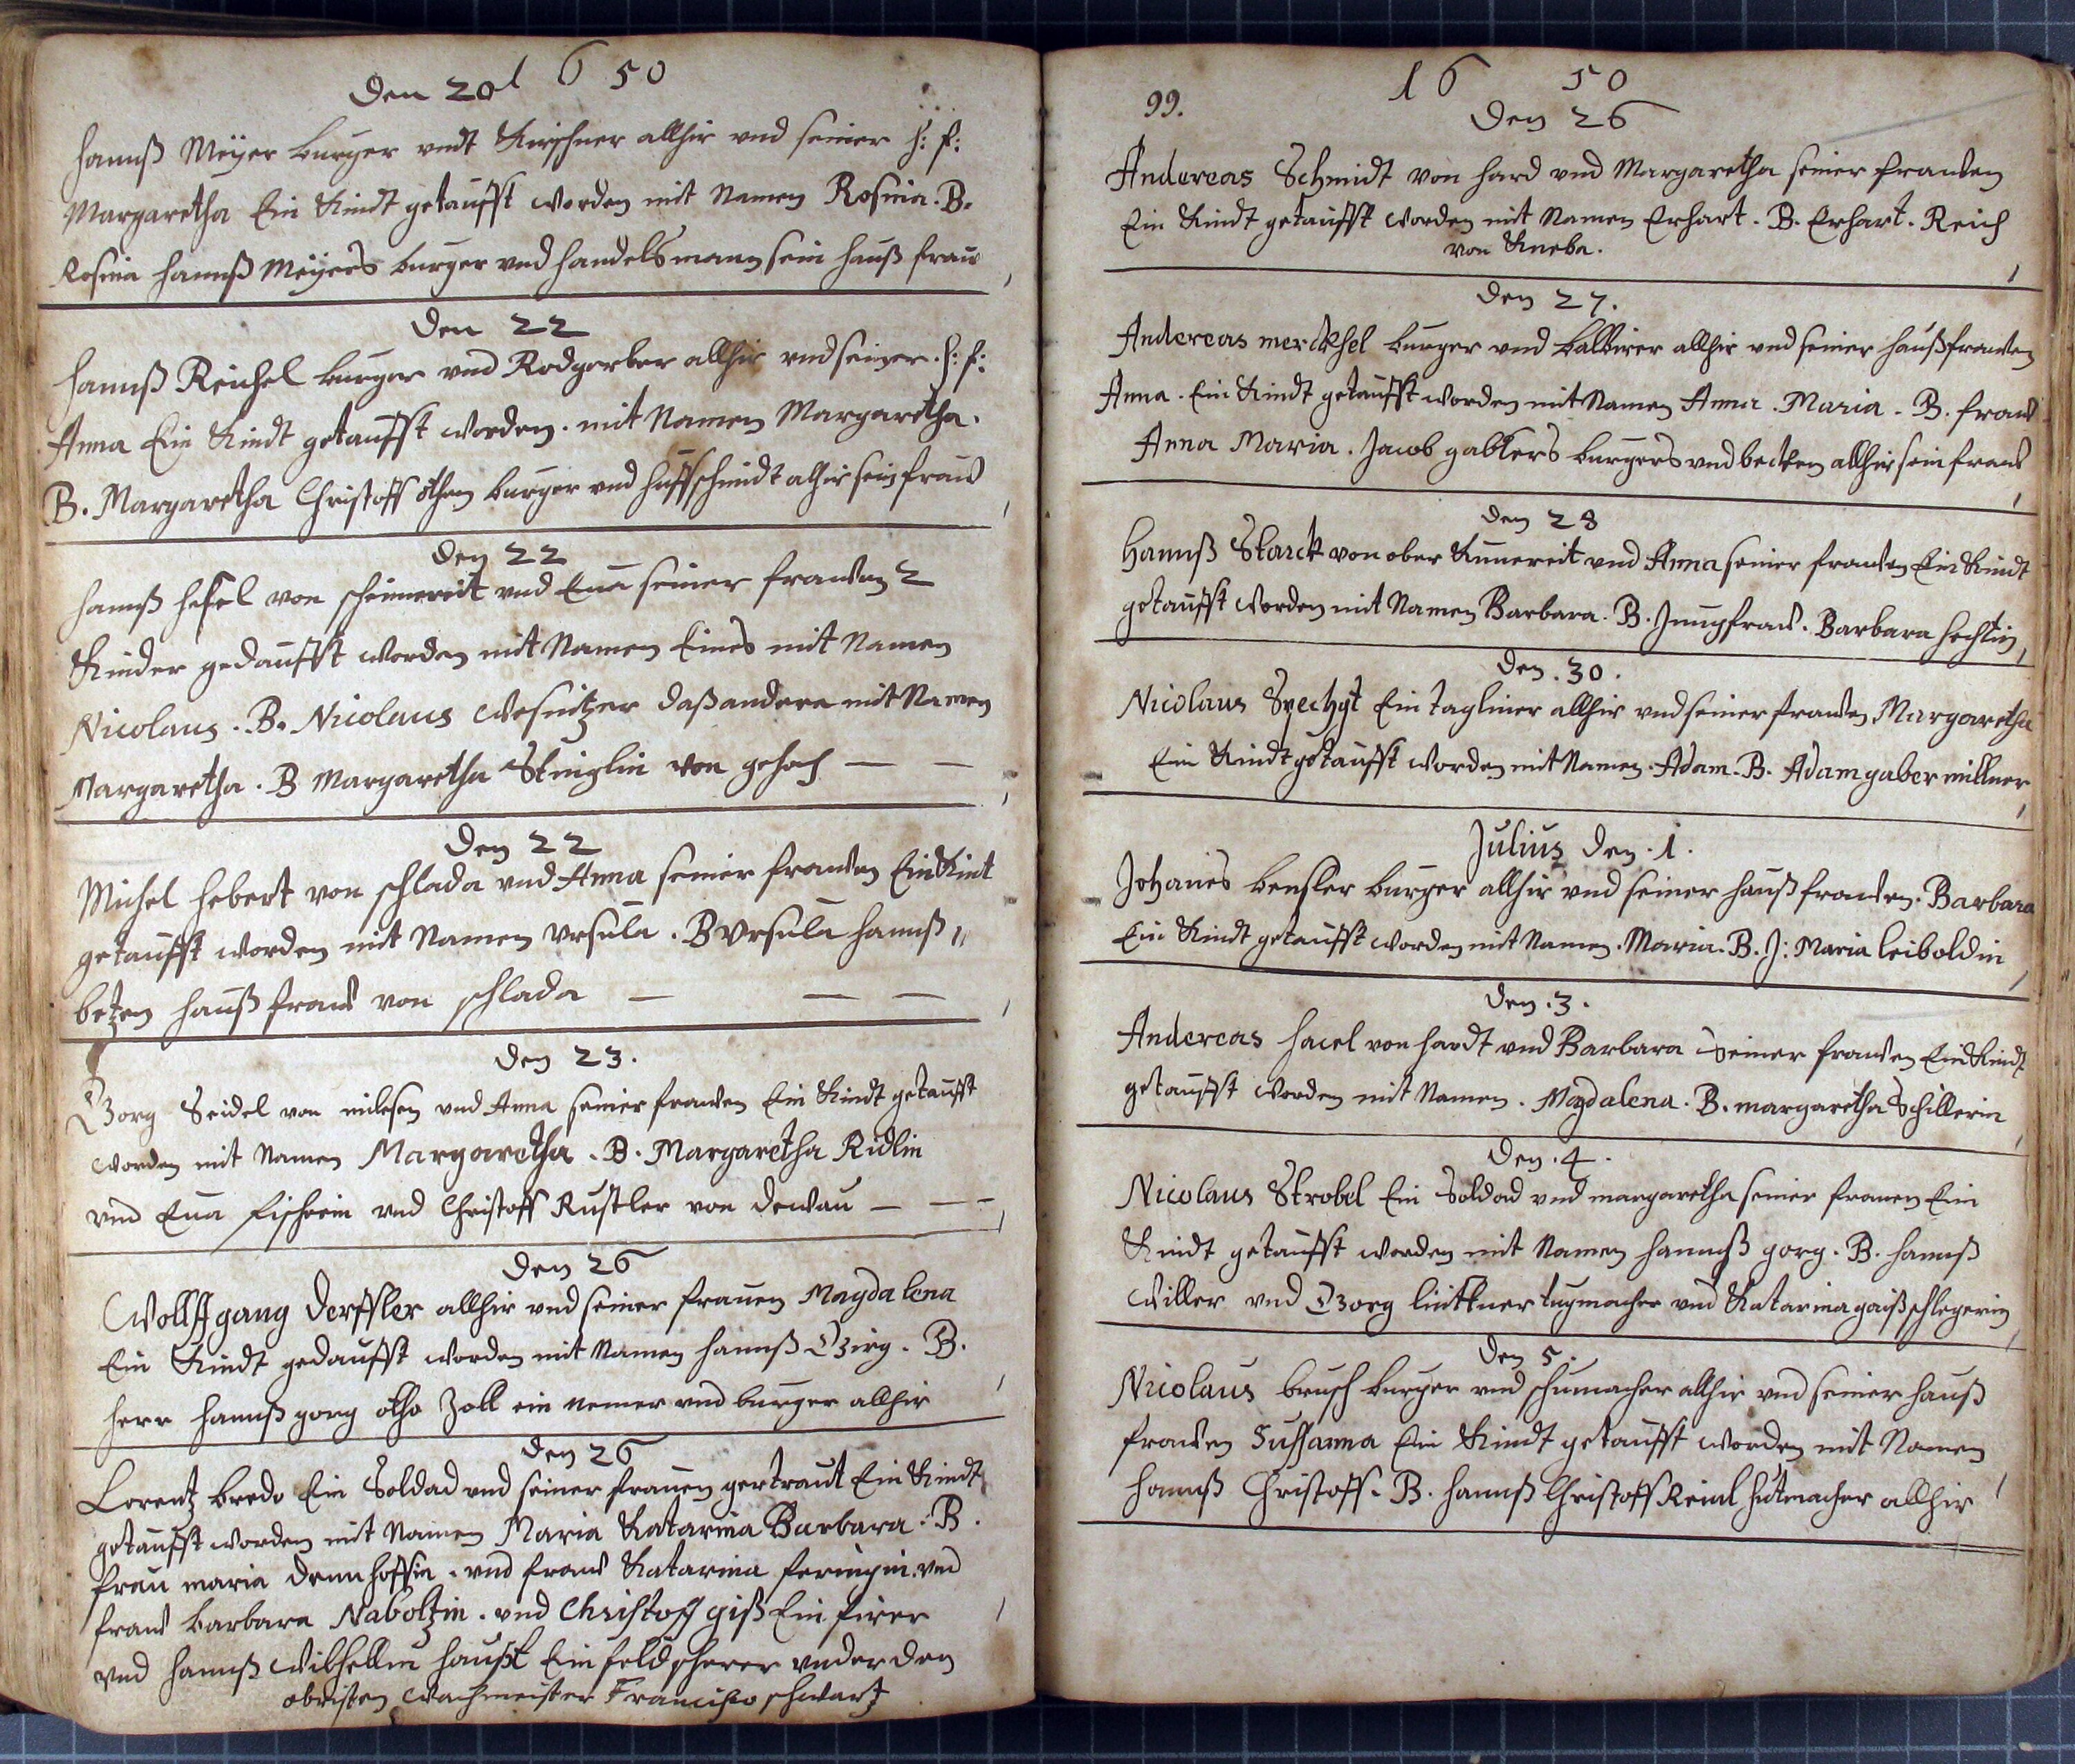 1650
Den 20
Hannß Meÿer burger undt Kirschner allhir und seiner H: f:
Margaretha Ein Kindt getaufft worden mit Namen Rosina. B.
Rosina Hannß Meÿers burger und handelsmann sein hauß frau
Den 22
Hannß Reichel burger und Rodgerber allhir und seiner. H: f:
Anna Ein Kindt getaufft worden. mit Namen Margaretha.
B. Margaretha Christoff othen burger und Huffschmidt alhir sein frau
Den 22
Hannß Hesel von und Eua seiner frawen 2
Kinder gedaufft worden mit Namen Eines mit Namen
Nicolaus. B. Nicolaus Wesnitzer daß andere mit Namen
Margaretha. B Margaretha von
Den 22
Michel Hebert von schlada und Anna seiner frawen Ein Kint
getaufft worden mit Namen Ursula. B Ursula Hannß
betzen hauß fraw von schlada
Den 23.
Georg Seidel von und Anna seiner frawen Ein Kindt getaufft
worden mit Namen Margaretha. B. Margaretha Ridlin
und Eua Fischrin und Christoff Rustler von
Den 26
Wollffgang Derffler allhir und seiner frauen Magdalena
Ein Kindt gedaufft worden mit Namen Hannß Girg. B.
Herr Hannß gorg otho Zoll ein nemer und burger allhir
Den 26
Lorentz bredo Ein Soldad und seiner frauen gertraut Ein Kindt
getaufft worden mit Namen Maria Katarina Barbara. B.
frau maria. und fraw Katarina und
fraw barbara Naboltzin. und Christoff giß Ein firer
und Hannß Wilhellm Ein feldscherer under den
obristen Wachmeister Francisco schwartz
99.
1650
Den 26
Andereas Schmidt von Hard und Margaretha seiner frawen
Ein Kindt getaufft worden mit Namen Erhart. B. Erhart. Reich
von
Den 27.
Andereas merckhel burger und balbirer allhir und seiner Haußfrawen
Anna. Ein Kindt getaufft worden mit Namen Anna. Maria. B. fraw
Anna Maria. Jacob gablers burgers und becken allhir sein fraw
Den 28
Hannß Starck von ober und Anna seiner frawen Ein Kindt
getaufft worden mit Namen Barbara. B. Jungfraw. Barbara Hechtin
Den. 30.
Nicolaus Ein tagliner allhir und seiner frawen Margaretha
Ein Kindt getaufft worden mit Namen. Adam. B. Adam gaber millner
Julius Den. 1.
Johanes bensler burger allhir und seiner haußfrawen. Barbara
Ein Kindt getaufft worden mit Namen. Maria. B. J: Maria leiboldin
Den. 3.
Andereas Hacel von Hardt und Barbara seiner frawen Ein Kindt
getaufft worden mit Namen. Magdalena. B. margaretha Schillerin
Den. 4.
Nicolaus Strobel Ein Soldad und margaretha seiner frauen Ein
Kindt getaufft worden mit Namen Hannß gorg. B. Hannß
Willer und Georg linttner tuchmacher und Katarina gaißschlegerin
Den 5.
Nicolaus brusch burger und schumacher allhir und seiner hauß
frawen Sussanna Ein Kindt getaufft worden mit Namen
Hannß Christoff. B. Hannß Christoff Reinl Hutmacher allhir